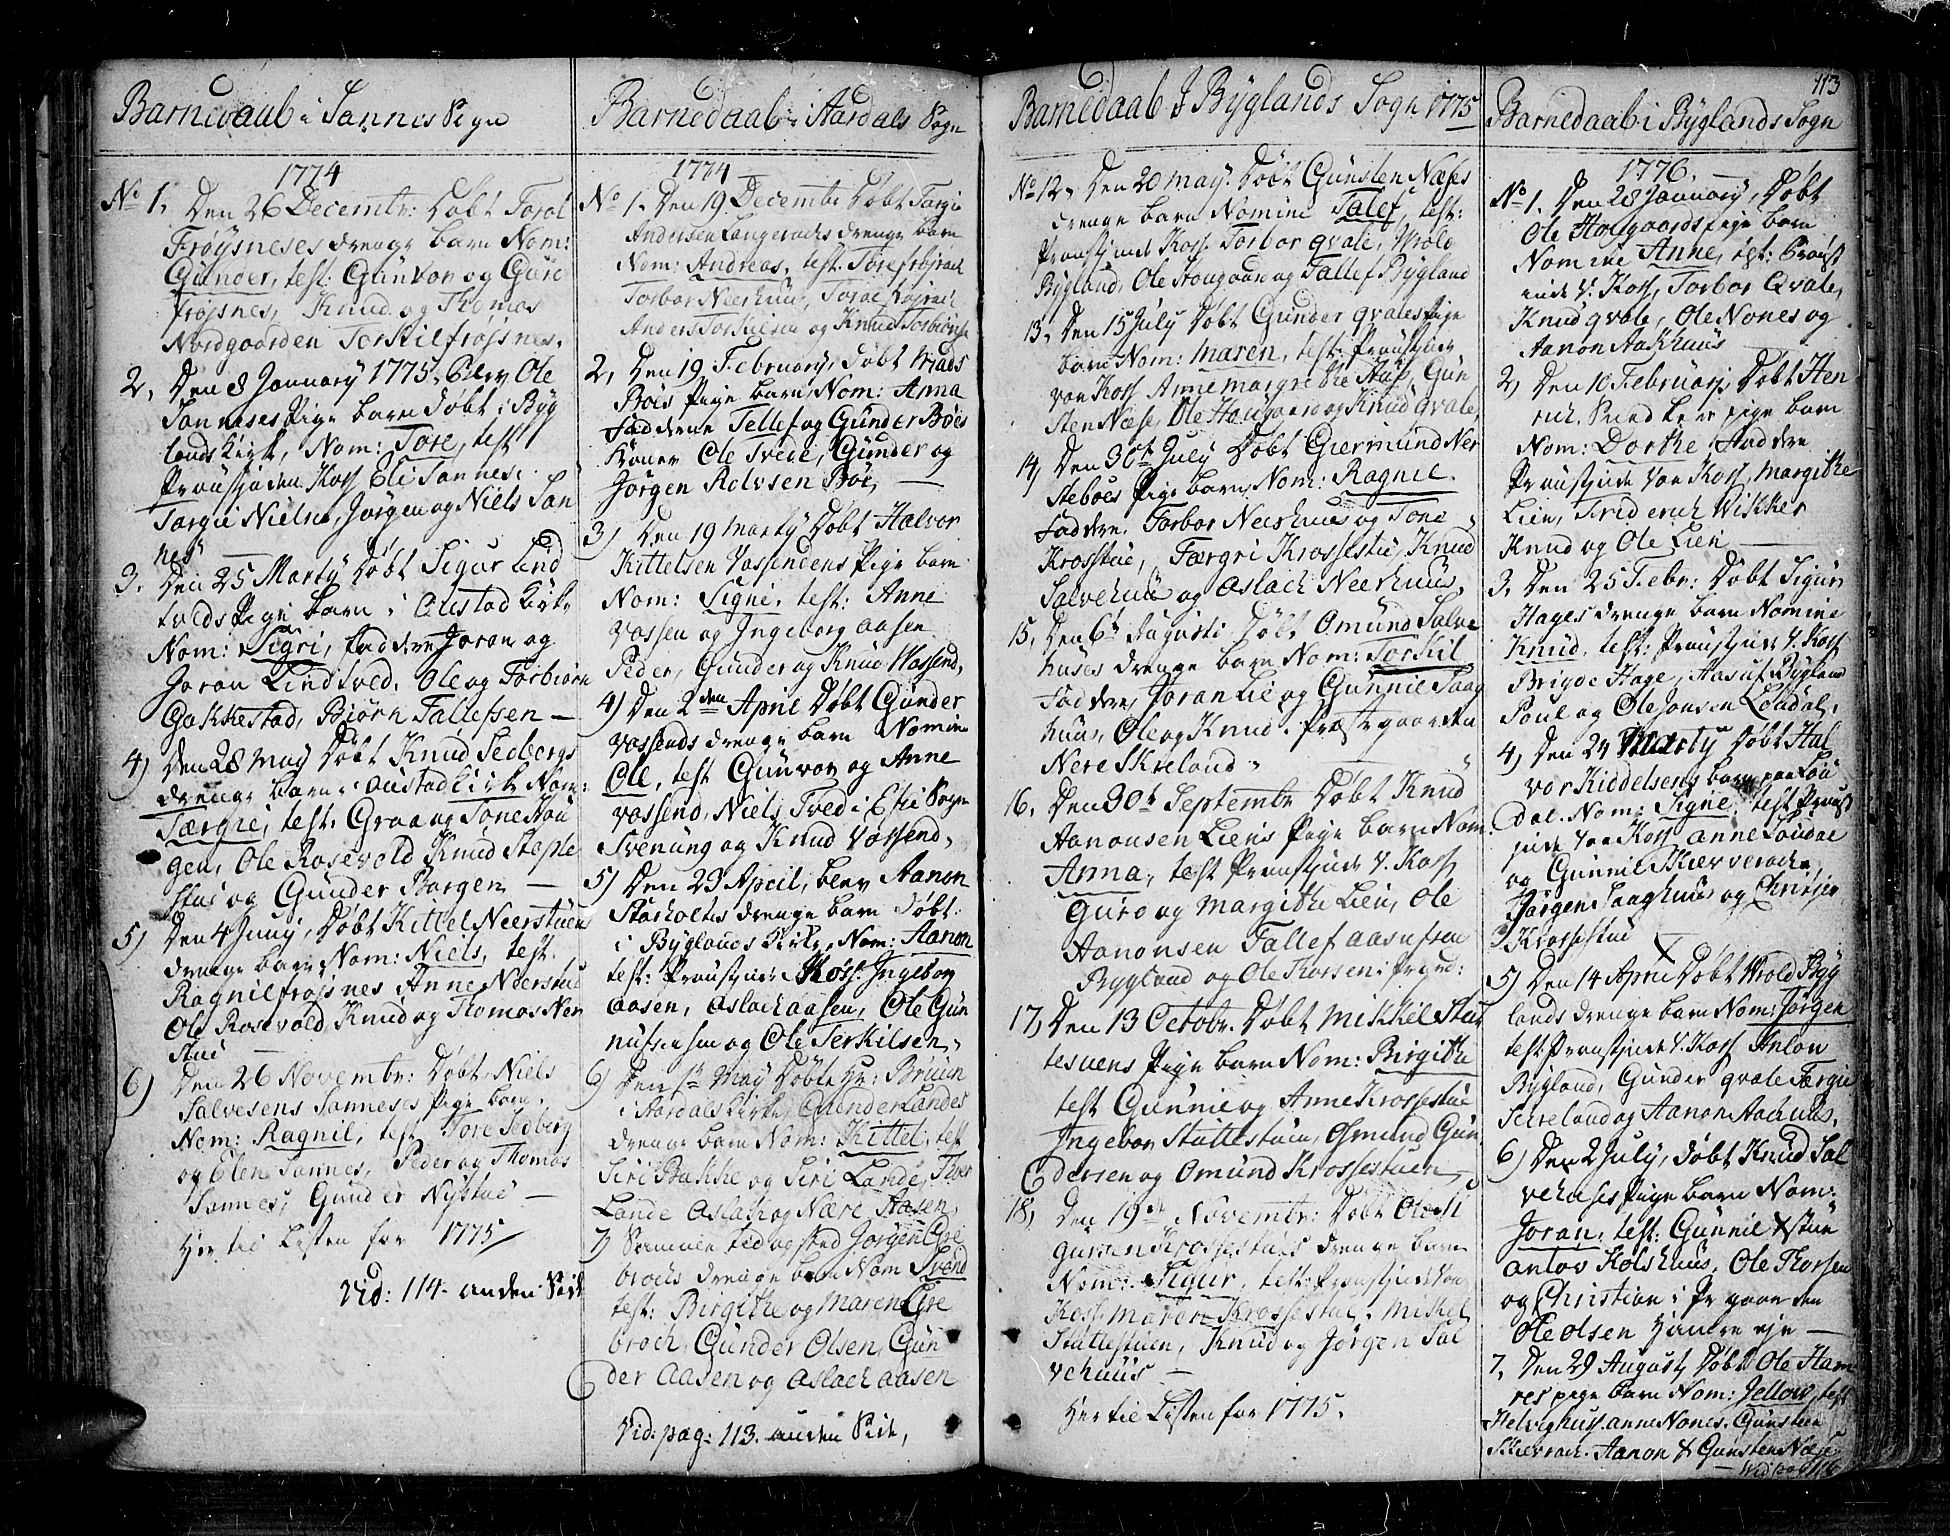 Barnedaab i Sannes Sogn
1774
No 1. Den 26 Decembr: Døbt Torol
Frøysneses drenge barn Nom:
Gunder, test: Gunvor og Guro
frøjsnes, Knud og Thomas
Nordgaarden Torkil frøjsnes.
2, Den 8 January 1775. blev Ole
Sanneses Pige barn døbt i Byg
lands Kirk, Nom: Tore, test
Eli Sannes,
Targie Niels, Jørgen og Niels San
nes
3. Den 25 Marty Døbt Sigur Lind
tveds Pige barn i Oustad Kirke
Nom: Sigri, faddere Joran og
Joran Lindtved, Ole og Torbiørn
Gakkestad, Biørn Tallefsen
4) Den 28 May Døbt Knud Sedbergs
drenge barn i Oustad Kirk Nom:
Tærgie, test: Groa og Tone Hou
gen, Ole Rosevold Knud Steple
stus og Gunder Borgen
5) Den 4 Juny, Døbt Kittel Neerstuens
drenge barn, Nom: Niels, test.
Ragnil frøjsnes Anne Neerstue
Ole Rosevold, Knud og Thomas Ner
stue
6) Den 26 Novembr: Døbt Niels
Salvesens Sanneses Pige barn.
Nom: Ragnil, test Tore Sedberg
og Elen Sannes, Peder og Thomas
Sannes, Gunder Nystue
Her til Listen for 1775
Vid: 114. anden Side
Barnedaab i Aardals Sogn
1774
No 1. Den 19 Decembr Døbt Targie
Andersen Langeracks drenge barn
Nom: Andreas, test. Tore frøjrack
Torbor Neerhuus, Toroe frøjrack
Anders Torkilsen og Knud Torbiønse
2, Den 19 February, døbt
Bøes Pige barn, Nom: Anna
Faddere Tellef og Gunder Bøes
Koner Ole Tvede, Gunder og
Jørgen Rolvsen Bøe,
3) Den 19 Marty Døbt Halvor
Kittelsen Vassendens Pige barn
Nom: Signe, test: Anne
Vossen og Ingeborg Aasen
Peder, Gunder og Knud Wassend,
4) Den 2den April Døbt Gunder
Vossends drenge barn Nomine
Ole, test Gunvor og Anne
Vossend, Niels Tved i Sogn
Svenung og Knud Vossend,
5) Den 23 April, blev Aanon
Starholtes drenge barn Døbt
i Byglands Kirke, Nom: Aanon
test: Koss. Ingeborg
Aasen, Aslach Aasen, Ole Gun
og Ole Terkilsen,
6) Den 1te May Døbte Hr: Bruun
i Aardals Kirke Gunder Landes
drenge barn Nom: Kittel, test
Siri Bakke og Siri Lande,
Lande Aslak og Nære Aasen,
7) Sammen tid og sted Jørgen Gre
brocks drenge barn Nom Svend
test: Birgithe og Maren Gre
broch, Gunder Olsen, Gun
der Aasen og Aslach Aasen
Vid: pag: 113. anden Side,
Barnedaab i Byglands Sogn 1775
No 12. Den 20 May. Døbt Gunsten Næses
drenge barn Nomine Talef, test:
Koss. Torbor Qvale, Wrold
Bygland, Ole Hougaard og Tallef Bygland
13. Den 15 July Døbt Gunder Qvales Pige
barn Nom: Maren, test:
von Koss Anne Margrethe Gun
sten Næse, Ole Hougaard og Knud Qvale
14, Den 30t July Døbt Giermund Ner
steboes Pige barn, Nom: Ragnil.
Faddere. Torbor Neerhuus og Tone
Krosstue, Tærgri Krossestue, Knud
Salvehuus og Aslach Neerhuus,
15, Den 6t Augusti Døbt Omund Salve
huses drenge barn Nom: Torkil
Faddere, Joran Lie og Gunnil Saag
huus, Ole og Knud i Præstegaarden
Nere Skieland
16. Den 30t Septembr Døbt Knud
Aanonsen Liens Pige barn Nom:
Anna, test V. Koss
Guro og Margithe Lien, Ole
Aanonsen Tallef Aasufsen
Bygland og Ole Thorsen i
17, Den 13 Octobr. Døbt Mikkel Stut
tesuens Pige barn Nom: Birgithe
test Gunnil og Anne Krossestue
Ingebor Stuttestuen, Osmund Gun
dersen og Omund Krossestuen,
18, Den 19n Novembr: Døbt
gunsen Krossestues drenge barn
Nom: Sigur, test: von
Koss Maren Krossestue, Mikel
Stuttestuen, Knud og Jørgen Sal
vehuus
Her til Listen for 1775.
113
Barnedaab i Byglands Sogn
1776.
No 1. Den 28 January, Døbt
Ole Hougaards Pige barn
Nomine Anne,
V. Koss, Torbor Qvale,
Knud Qvale, Ole Nones og
Aanon Aakhuus
2, Den 10 February, Døbt Hen
rich pige barn
Nom: Dorthe, faddere
von Koss, Margithe
Lien, Friderich Wikker
Knud og Ole Lien
3. Den 25 Febr: Døbt Sigur
Hages drenge barn Nomine
Knud, test: V. Koss
Brigde Hage, Aasuf Bygland
Poul og Ole Jonsen Loudal,
4, Den 24 Marty Døbt Hal
vor Kiddelsens barn paa Lou
dal. Nom: Signe, test
von Koss Anne Loudal
og Gunnil Skieverack,
Jørgen Saaghuus og Christen
Krossestue
5) Den 14 April Døbt Wrold Byg
lands drenge barn Nom: Jørgen
test V. Koss Anlon
Bygland, Gunder Qvale Tærgie
og Aanon Aachuus,
6) Den 2 July, døbt Knud Sal
vehuses Pige barn Nom:
Joran, test: Gunnil
Antov Kolshuus, Ole Thorsen
og Christian i Pr gaarden
Ole Olsen
7, Den 29 August, Døbt Ole Ham
res pige barn Nom: Jellow, test
Anne Nones. Gunsteen
Skierrack. Aanon & Gunsten Næse